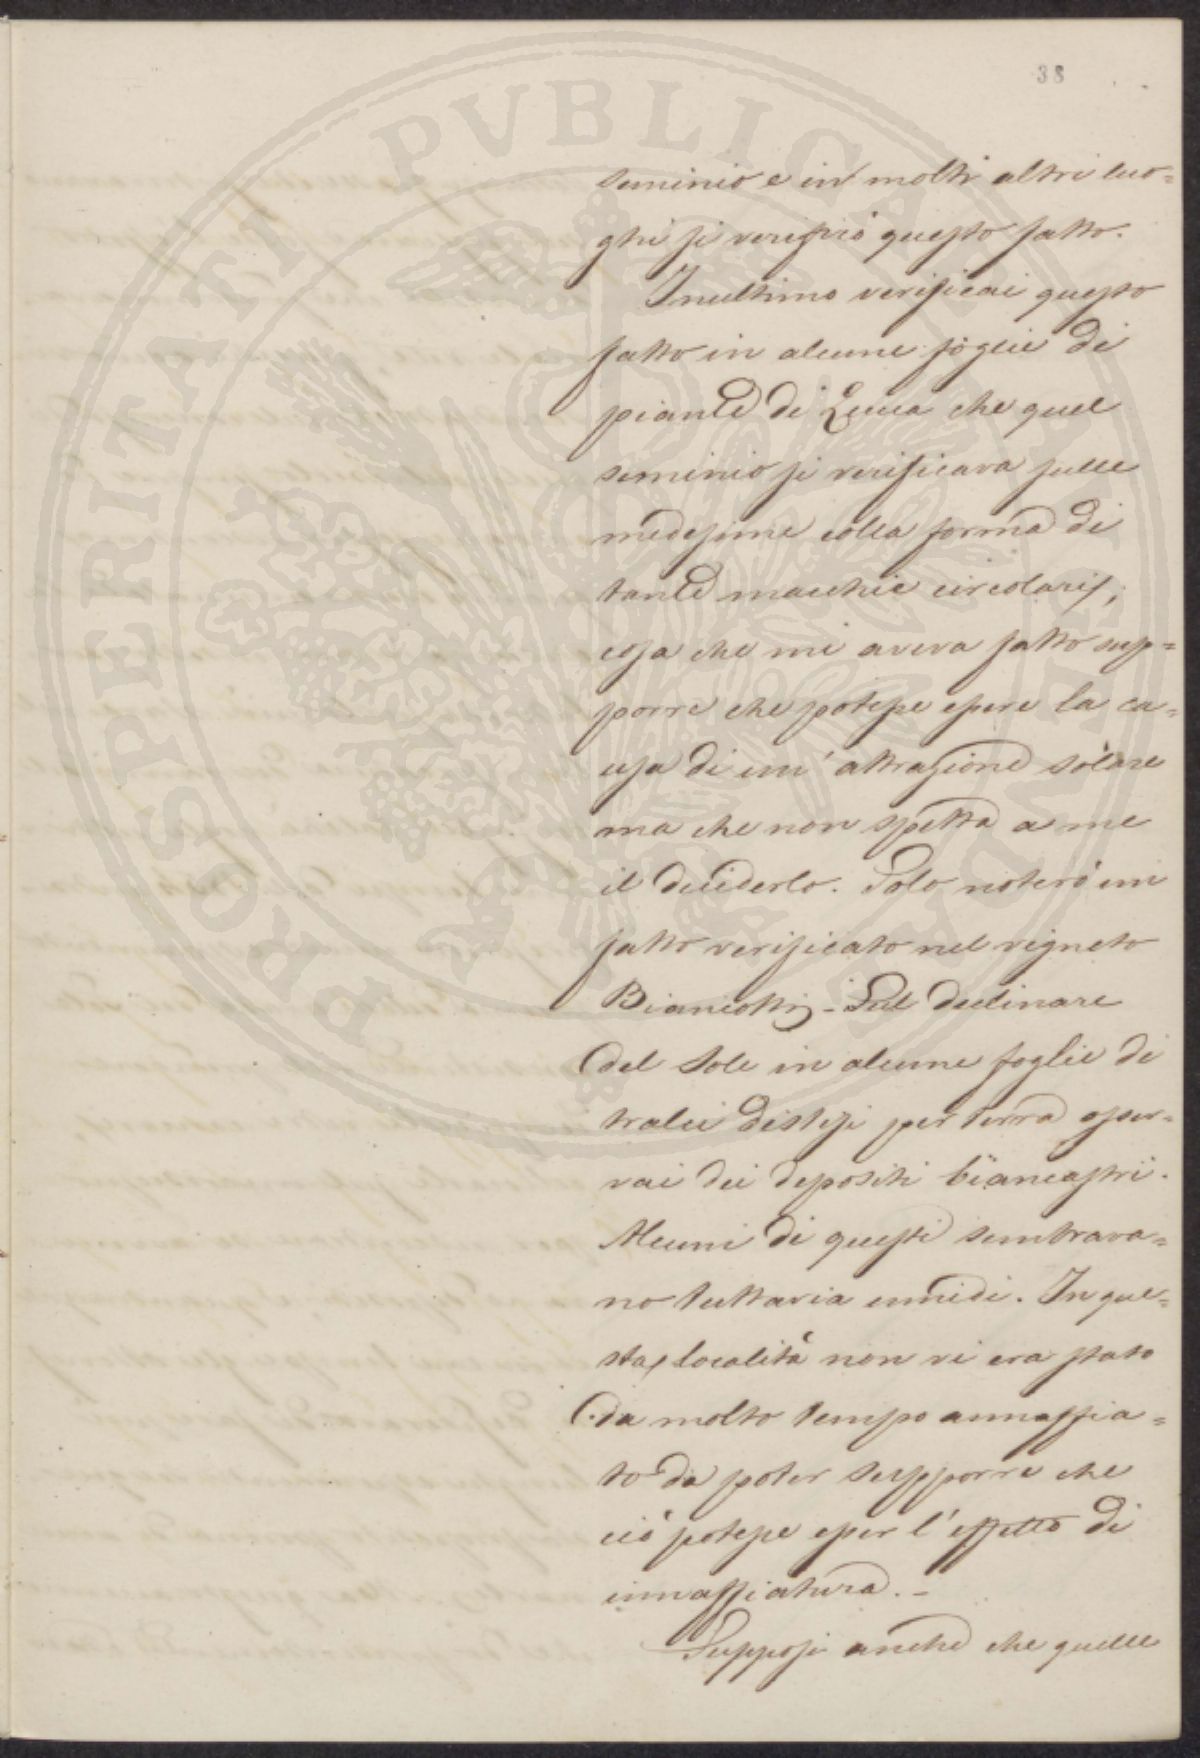 38
seminio e in molti altri luo=
ghi si verificò questo fatto.
Inultimo verificai questo
fatto in alcune foglie di
piante di Zucca che quel
seminio si verificava sulle
medesime colla forma di
tante macchie circolari,
cosa che mi aveva fatto sup=
porre che potesse essere la ca=
usa di un' attrazione solare
ma che non spetta a me
il deciderlo. Solo noterò un
fatto verificato nel vigneto
Biancotti - Sul declinare
del Sole in alcune foglie di
tralci distesi per terra osser=
vai dei depositi biancastri.
Alcuni di questi sembrava=
no tuttavia umidi. In que=
sta località non vi era stato
da molto tempo annaffia=
to da poter supporre che
ciò potesse esser l' effetto di
innaffiatura. -
Supposi anche che quelle
PROSPERITATI PVBLICAE AVGENDAE